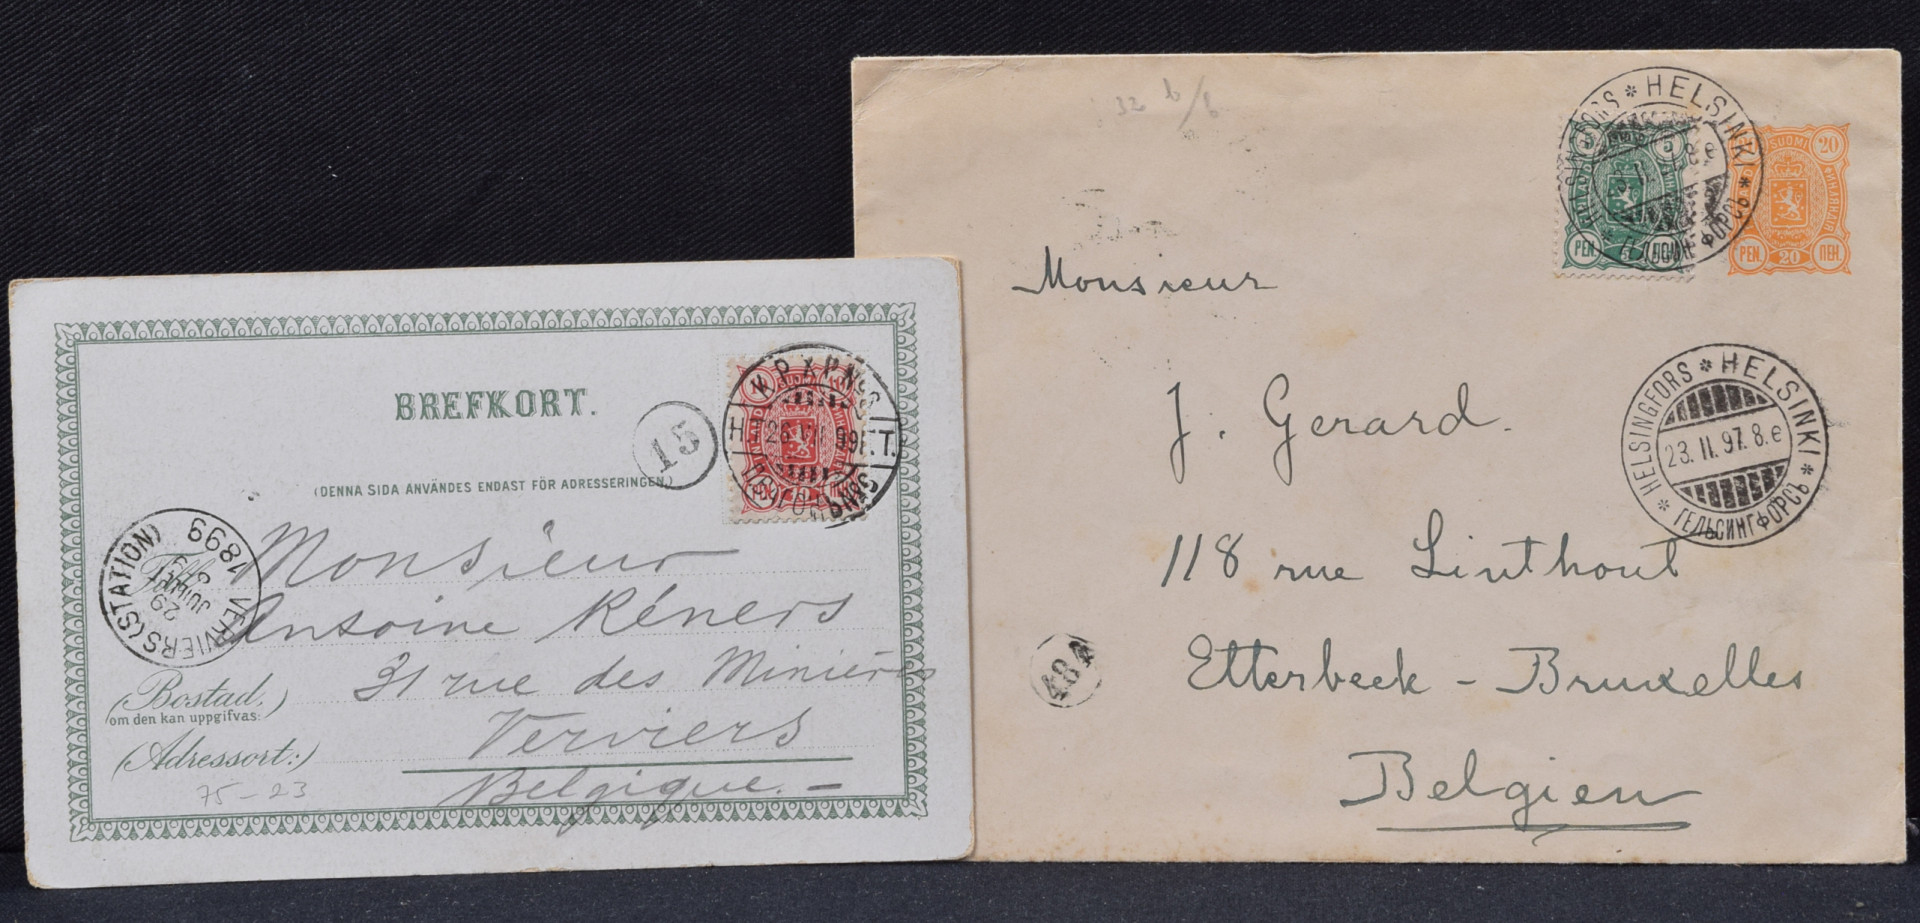 BREFKORT.
(DENNA SIDA ANVÄNDES ENDAST FÖR ADRESSERINGEN.)
15
SUOMI
VERVIERS (STATION)
1899
29
JUILLET
Monsieur
Antoine Réners
31 rue des Minières
Verviers
Belgique. -
(Bostad,)
om den kan uppgifvas:
(Adressort:)
75-23
32 b/b
HELSINKI
5
PEN. 5
SUOMI
20
PEN. 20 ПЕН.
HELSINGFORS * HELSINKI *
23. II. 97. 8. e
* ГЕЛЬСИНГФОРСЪ
Monsieur
J. Gerard.
118 rue Linthout
Etterbeek - Bruxelles
Belgien
48A